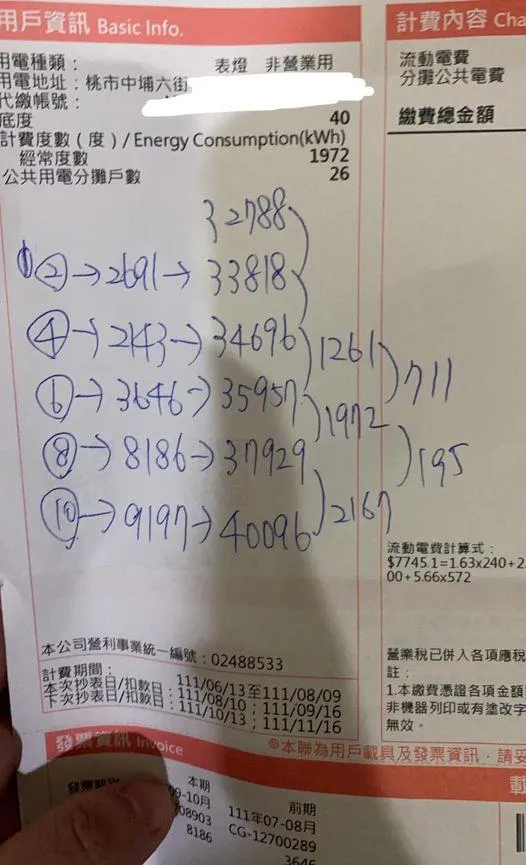 用戶資訊 Basic Info.
用電種類： 表燈 非營業用
用電地址：桃市中埔六街
代繳帳號：
底度 40
計費度數（度）/ Energy Consumption(kWh)
經常度數 1972
公共用電分攤戶數 26
計費內容 Cha
流動電費
分攤公共電費
繳費總金額
32788
② → 2691 → 33818
④ → 2143 → 34696
⑥ → 3646 → 35957
⑧ → 8186 → 37929
⑩ → 9197 → 40096
1261
1972
2167
711
195
流動電費計算式：
$7745.1=1.63x240+2.
00+5.66x572
本公司營利事業統一編號：02488533
計費期間： 111/06/13至111/08/09
本次抄表日/扣款日： 111/08/10；111/09/16
下次抄表日/扣款日： 111/10/13；111/11/16
營業稅已併入各項應稅
註：
1.本繳費憑證各項金額
非機器列印或有塗改字
無效。
發票資訊 Invoice
本聯為用戶載具及發票資訊，請妥
本期 前期
09-10月 111年07-08月
708903 CG-12700289
8186 3646
載